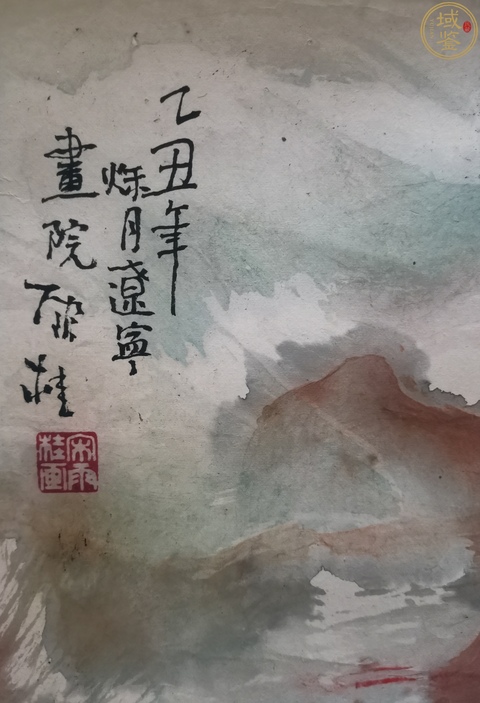 乙丑年
秌月遼寧
畫院雨桂
宋雨
桂画
域鉴